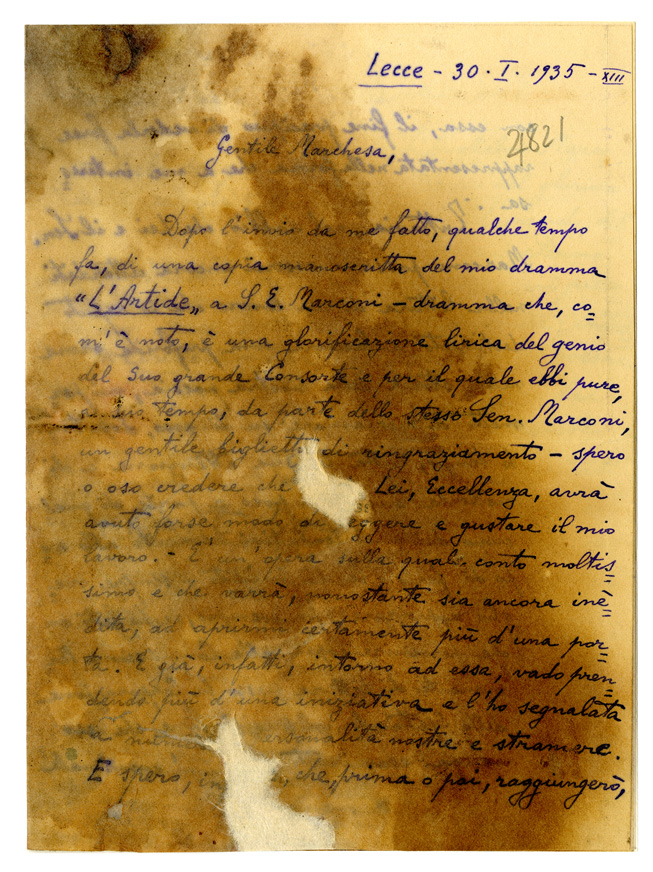 Lecce - 30 · I · 1935 - XIII
4821
Gentile Marchesa,
Dopo l'invio da me fatto, qualche tempo
fa, di una copia manoscritta del mio dramma
"L'Artide„ a S. E. Marconi - dramma che, co=
m'è noto, è una glorificazione lirica del genio
del Suo grande Consorte e per il quale ebbi pure,
a suo tempo, da parte dello stesso Sen. Marconi,
un gentile biglietto di ringraziamento - spero
o oso credere che Lei, Eccellenza, avrà
avuto forse modo di leggere e gustare il mio
lavoro. - È un'opera sulla quale conto moltis=
simo e che varrà, nonostante sia ancora ine=
dita, ad aprirmi certamente più d'una por=
ta. E già, infatti, intorno ad essa, vado pren=
dendo più d'una iniziativa e l'ho segnalata
a personalità nostre e straniere.
E spero, che, prima o poi, raggiungerò,